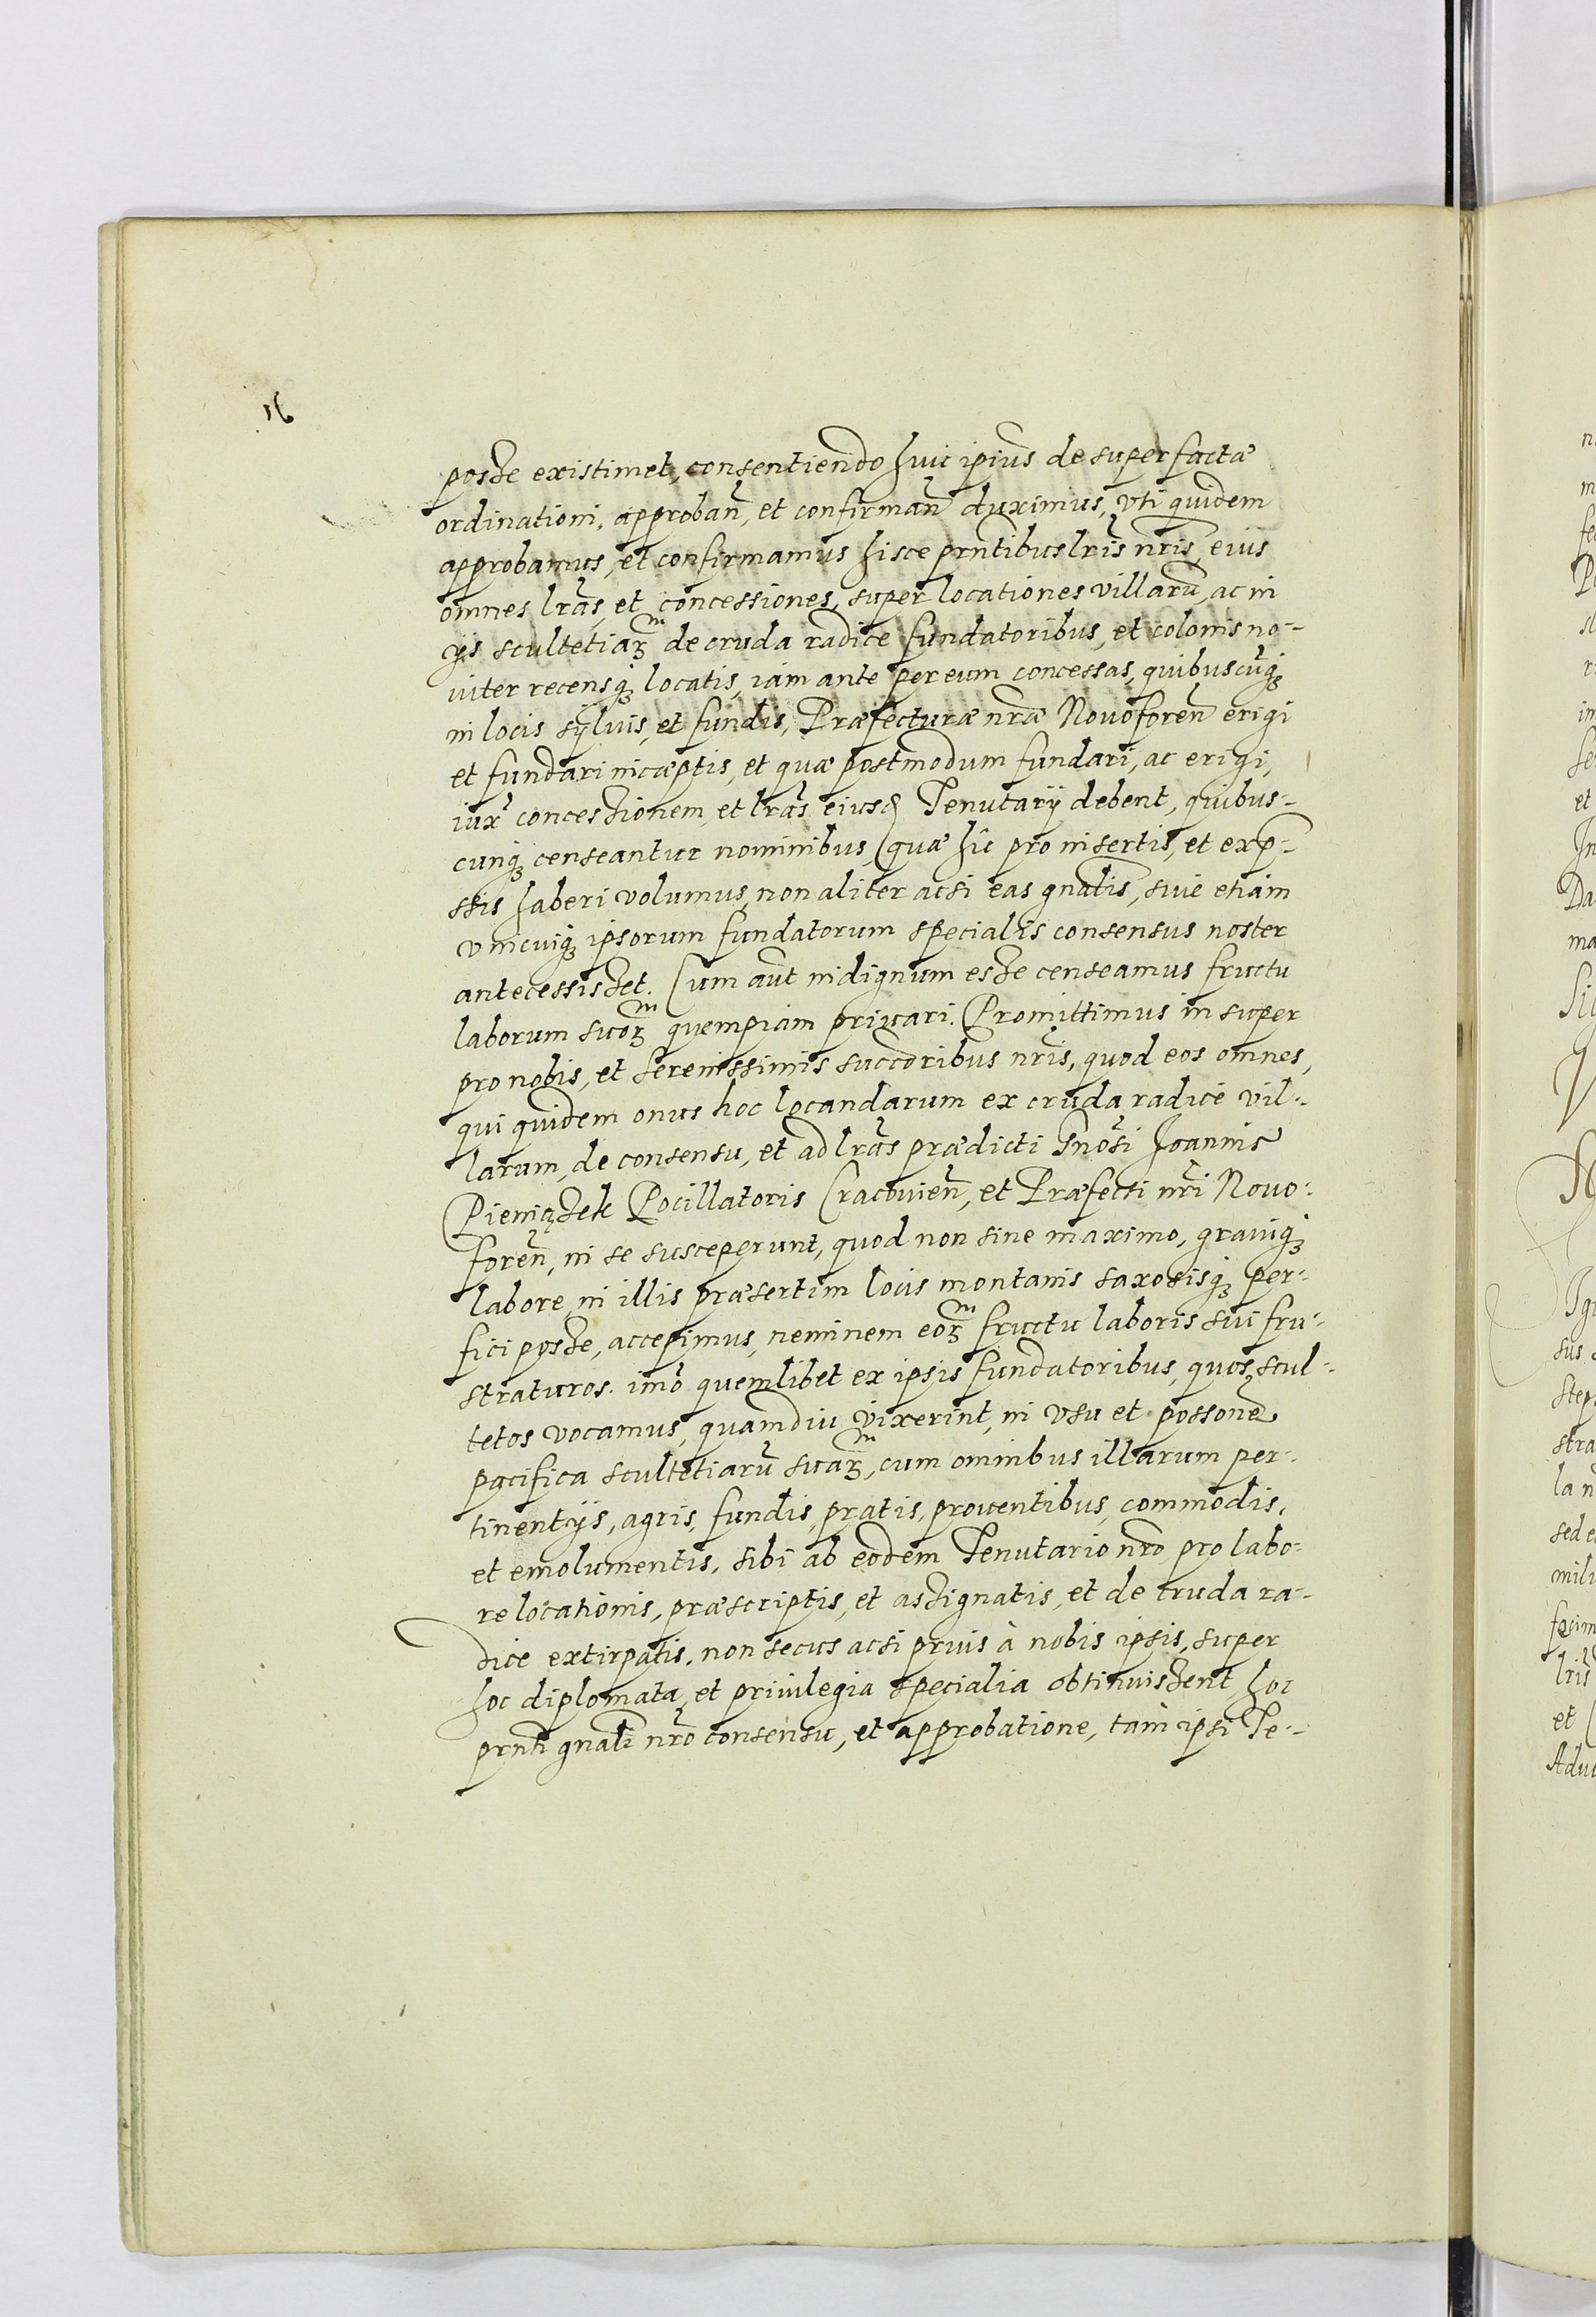 16
posse existimet, consentiendo huic ipiūs desuper factæ
ordinationi, approban̄, et confirman̄ duximus, vti quidem
approbamus, et confirmamus hisce prn̄tibus lrīs nrīs, eius
omnes lrās, et concessiones, super locationes villarū, ac in
ijs scultetiaꝝ de cruda radice fundatoribus, et colonis no-
uiter recensqꝫ locatis, iam ante per eum concessas, quibuscūqꝫ
in locis syluis, et fundis, Præfecturæ nrāe Nouoforen̄ erigi
et fundari incæptis, et quæ postmodum fundari, ac erigi,
iux̄ concessionem, et lrās eiusd Tenutarij debent, quibus-
cunqꝫ censeantur nominibus, (quæ hic pro insertis, et exp̄-
ssis haberi volumus, non aliter acsi eas gnālis, siue etiam
vnicuiqꝫ ipsorum fundatorum specialis consensus noster
antecessisset. Cum aūt indignum esse censeamus fructu
laborum suoꝝ quempiam priuari. Promittimus insuper
pro nobis, et Serenissimis succōribus nrīs, quod eos omnes,
qui quidem onus hoc locandarum ex cruda radice vil-
larum, de consensu, et ad lrās prædicti Gnōsi Joannis
Pieniążek Pocillatoris Cracouien̄, et Præfecti nrī Nouo-
foren̄, in se susceperunt, quod non sine maximo, grauiqꝫ
labore, in illis præsertim locis montanis saxosisqꝫ per-
fici posse, accepimus, neminem eoꝝ fructu laboris sui fru-
straturos. imo quemlibet ex ipsis fundatoribus, quos scul-
tetos vocamus, quamdiu vixerint, in vsu et possone
pacifica scultetiarū suaꝝ, cum omnibus illarum per-
tinentijs, agris, fundis, pratis, prouentibus, commodis,
et emolumentis, sibi ab eodem Tenutario nrō pro labo-
re locationis, præscriptis, et assignatis, et de cruda ra-
dice extirpatis, non secus acsi prius à nobis ipsis, super
hoc diplomata, et priuilegia specialia obtinuissent, hoc
prn̄ti gnāli nrō consensu, et approbatione, tam ipsi Te-